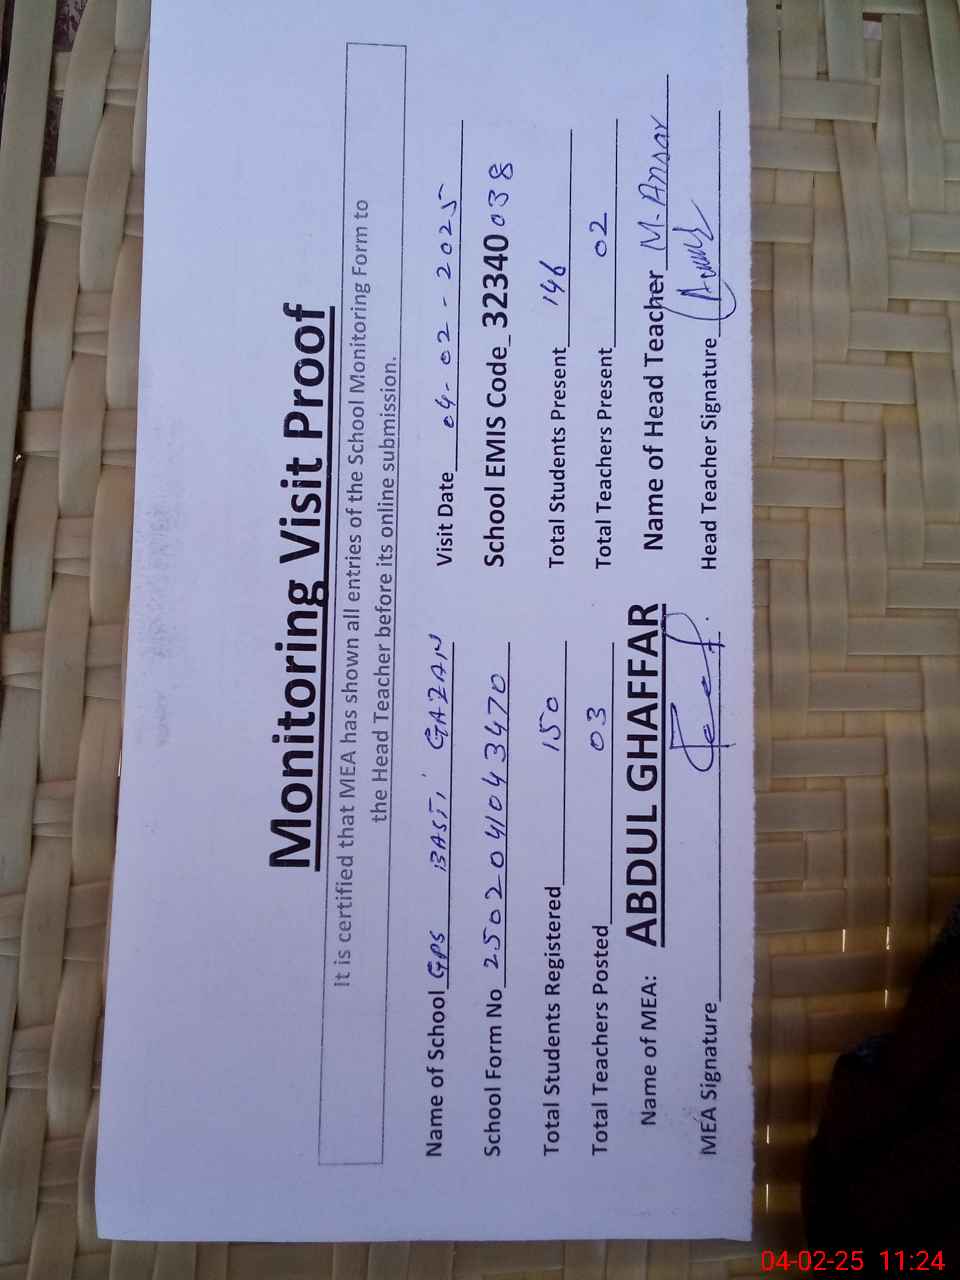 Monitoring Visit Proof
It is certified that MEA has shown all entries of the School Monitoring Form to
the Head Teacher before its online submission.
Name of School GPS BASTI GAZAN Visit Date 04-02-2025
School Form No 2502041043470 School EMIS Code_32340038
Total Students Registered 150 Total Students Present 146
Total Teachers Posted 03 Total Teachers Present 02
Name of MEA: ABDUL GHAFFAR Name of Head Teacher M. Ansar
MEA Signature Head Teacher Signature
04-02-25 11:24